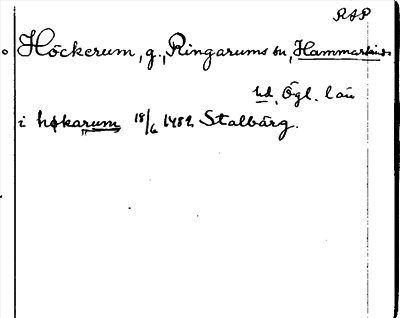 RAP
Höckerum, g., Ringarums sn, Hammarkinds
hd, Ögl. län
i høkarum 18/6 1482 Stalbärg.